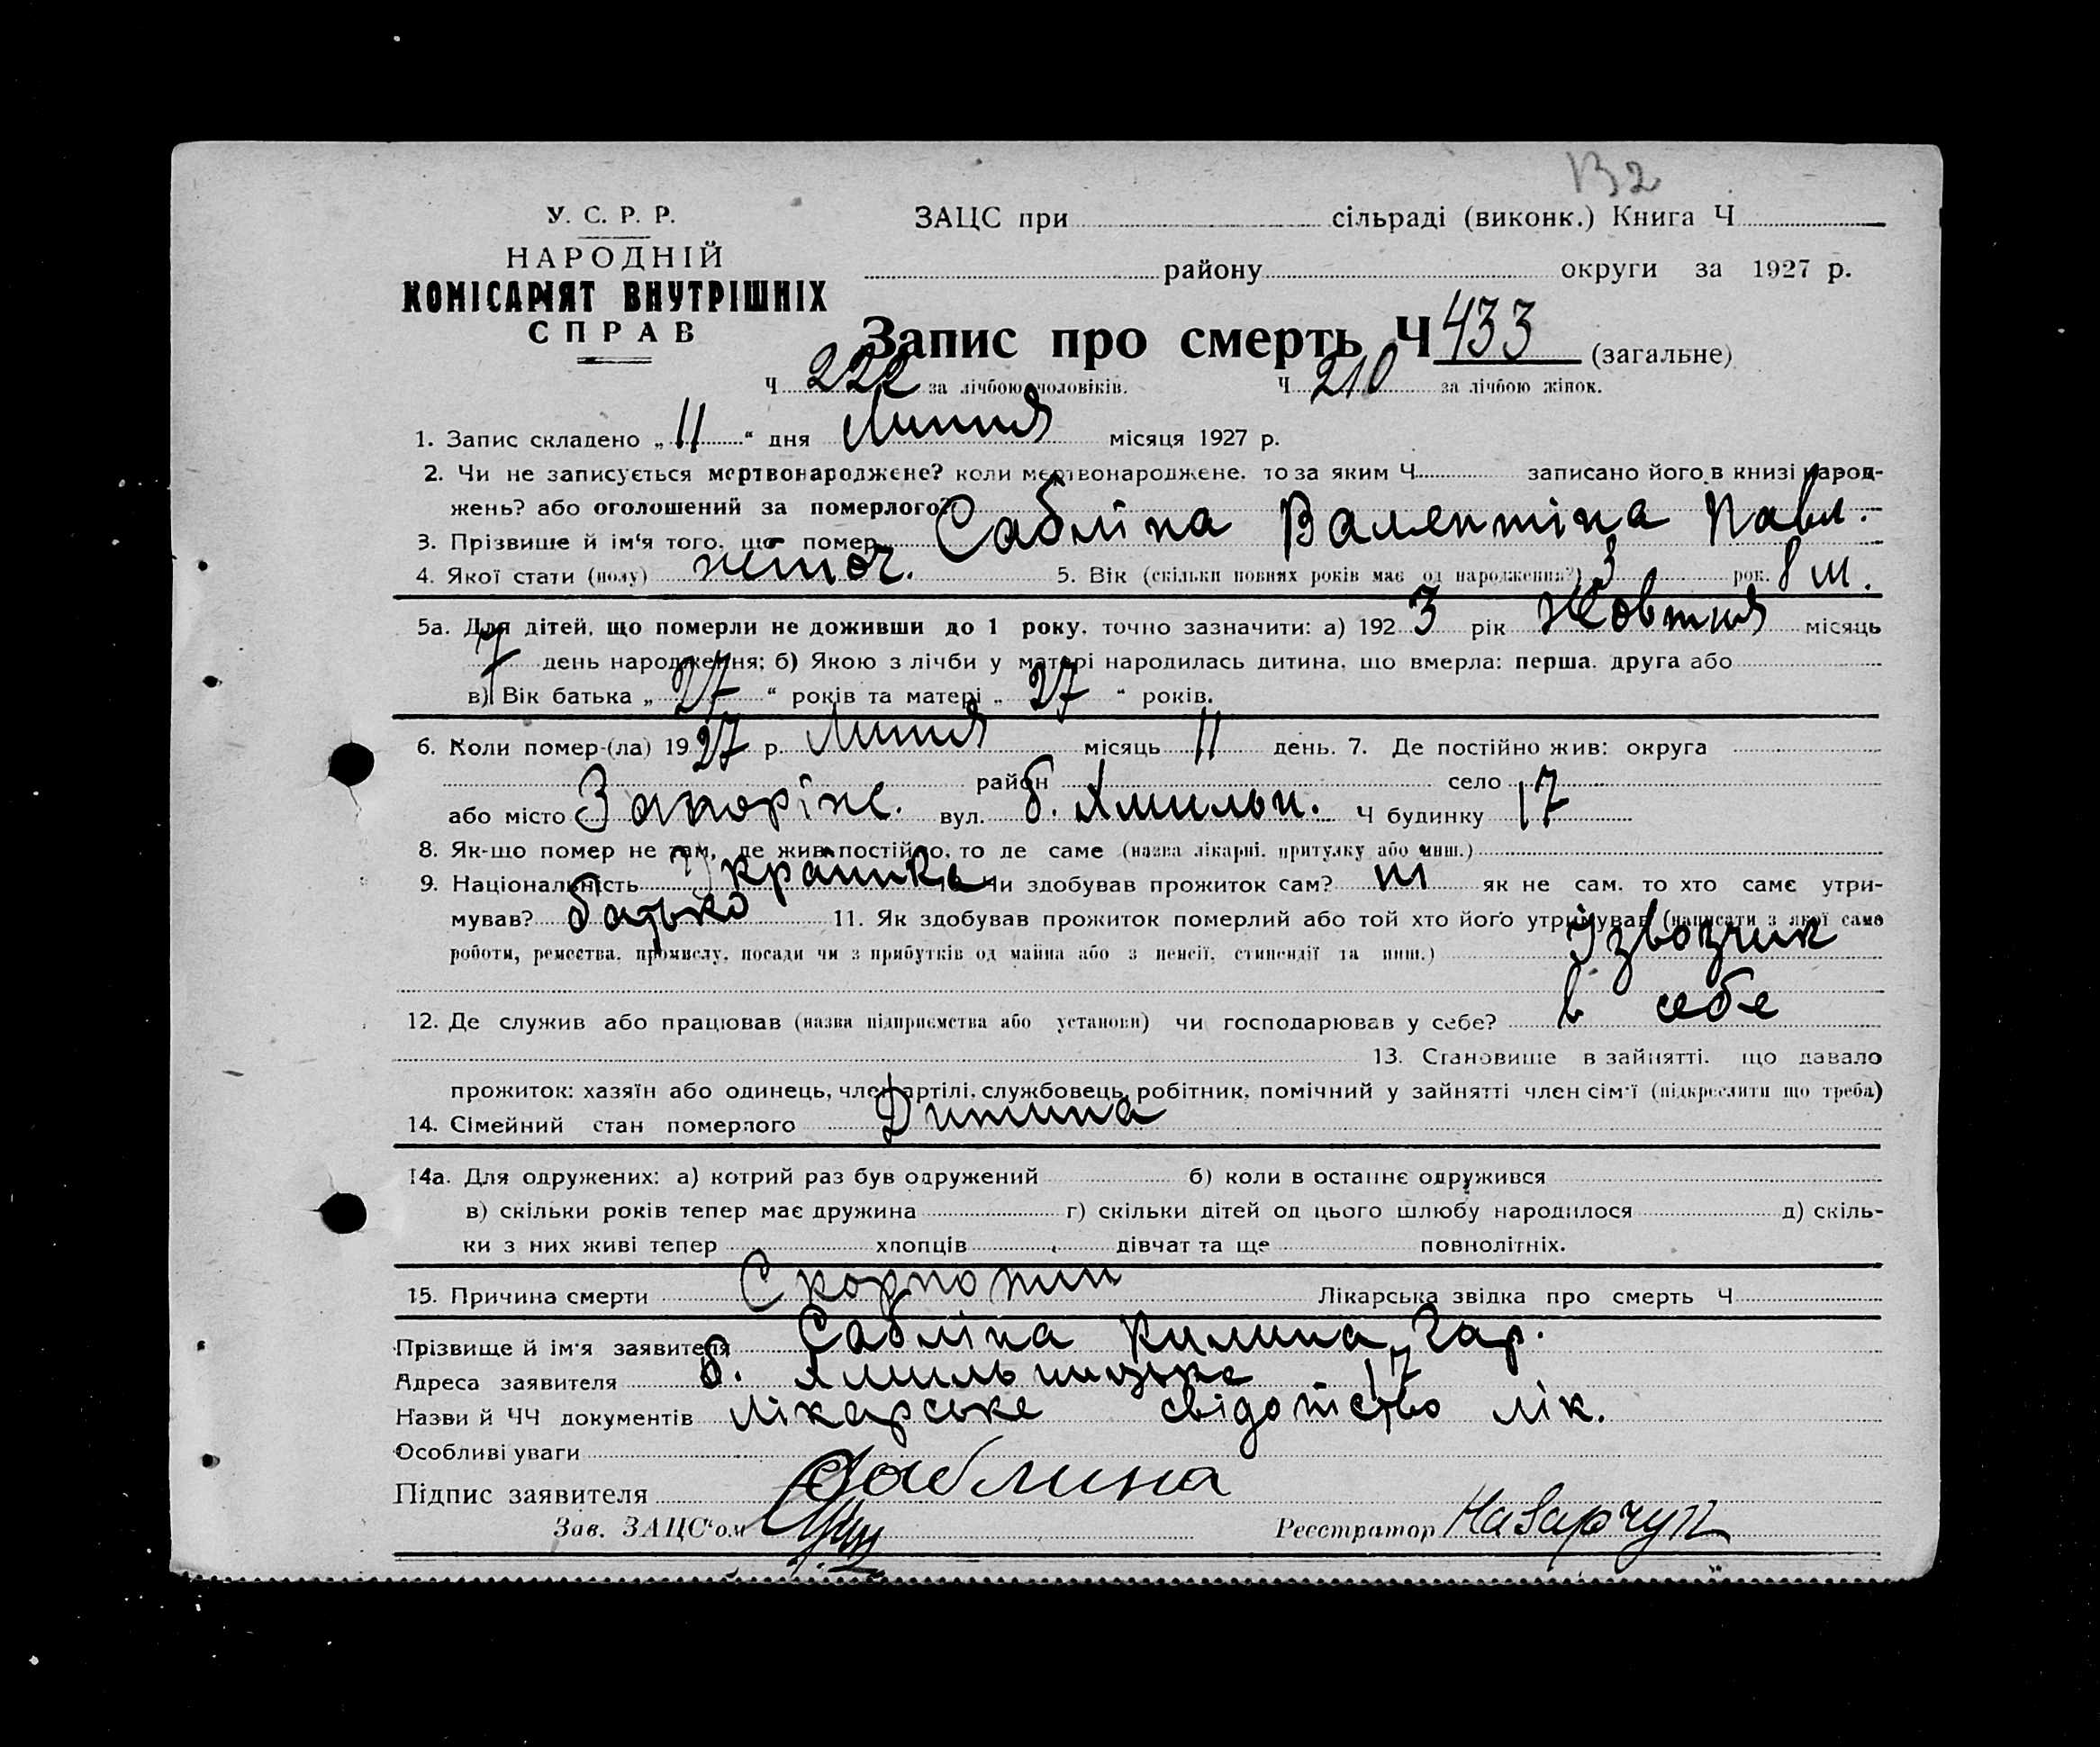 132
У. С. Р. Р.
НАРОДНІЙ
КОМІСАРІЯТ ВНУТРІШНІХ
СПРАВ
ЗАЦС при сільраді (виконк.) Книга Ч
району округи за 1927 р.
Запис про смерть Ч 433 (загальне)
Ч 222 за лічбою чоловіків. Ч 210 за лічбою жінок.
1. Запис складено „ 11 “ дня Липня місяця 1927 р.
2. Чи не записується мертвонароджене? коли мертвонароджене, то за яким Ч записано його в книзі народ-
жень? або оголошений за померлого?
3. Прізвище й ім'я того, що помер Сабліна Валентіна Павл.
4. Якої стати (полу) жіноч. 5. Вік (скільки повних років має од народження?) 3 рок. 8 м.
5а. Для дітей, що померли не доживши до 1 року, точно зазначити: а) 192 3 рік Жовтня місяць
7 день народження; б) Якою з лічби у матері народилась дитина, що вмерла: перша, друга або
в) Вік батька „ 27 “ років та матері „ 27 “ років.
6. Коли помер-(ла) 19 27 р. Липня місяць 11 день. 7. Де постійно жив: округа
район село
або місто Запоріж. вул. б. Хмильн. Ч будинку 17
8. Як-що помер не там, де жив постійно, то де саме (назва лікарні, притулку або инш.)
9. Національність Українка чи здобував прожиток сам? ні як не сам, то хто саме утри-
мував? батько 11. Як здобував прожиток померлий або той хто його утримував (написати з якої саме
роботи, ремества, промислу, посади чи з прибутків од майна або з пенсії, стипендії та инш.) Ізвозчик
12. Де служив або працював (назва підприємства або установи) чи господарював у себе? в себе
13. Становище в зайнятті, що давало
прожиток: хазяїн або одинець, член артілі, службовець, робітник, помічний у зайнятті член сім'ї (підкреслити що треба)
14. Сімейний стан померлого Дитина
14а. Для одружених: а) котрий раз був одружений б) коли в останнє одружився
в) скільки років тепер має дружина г) скільки дітей од цього шлюбу народилося д) скіль-
ки з них живі тепер хлопців дівчат та ще повнолітніх.
15. Причина смерти Лікарська звідка про смерть Ч
Прізвище й ім'я заявителя Сабліна Килина Гар.
Адреса заявителя б. Хмильницьке 17
Назви й ЧЧ документів Лікарське свідоцтво лік.
Особливі уваги
Підпис заявителя Саблина
Зав. ЗАЦС'ом Реєстратор Назарчук